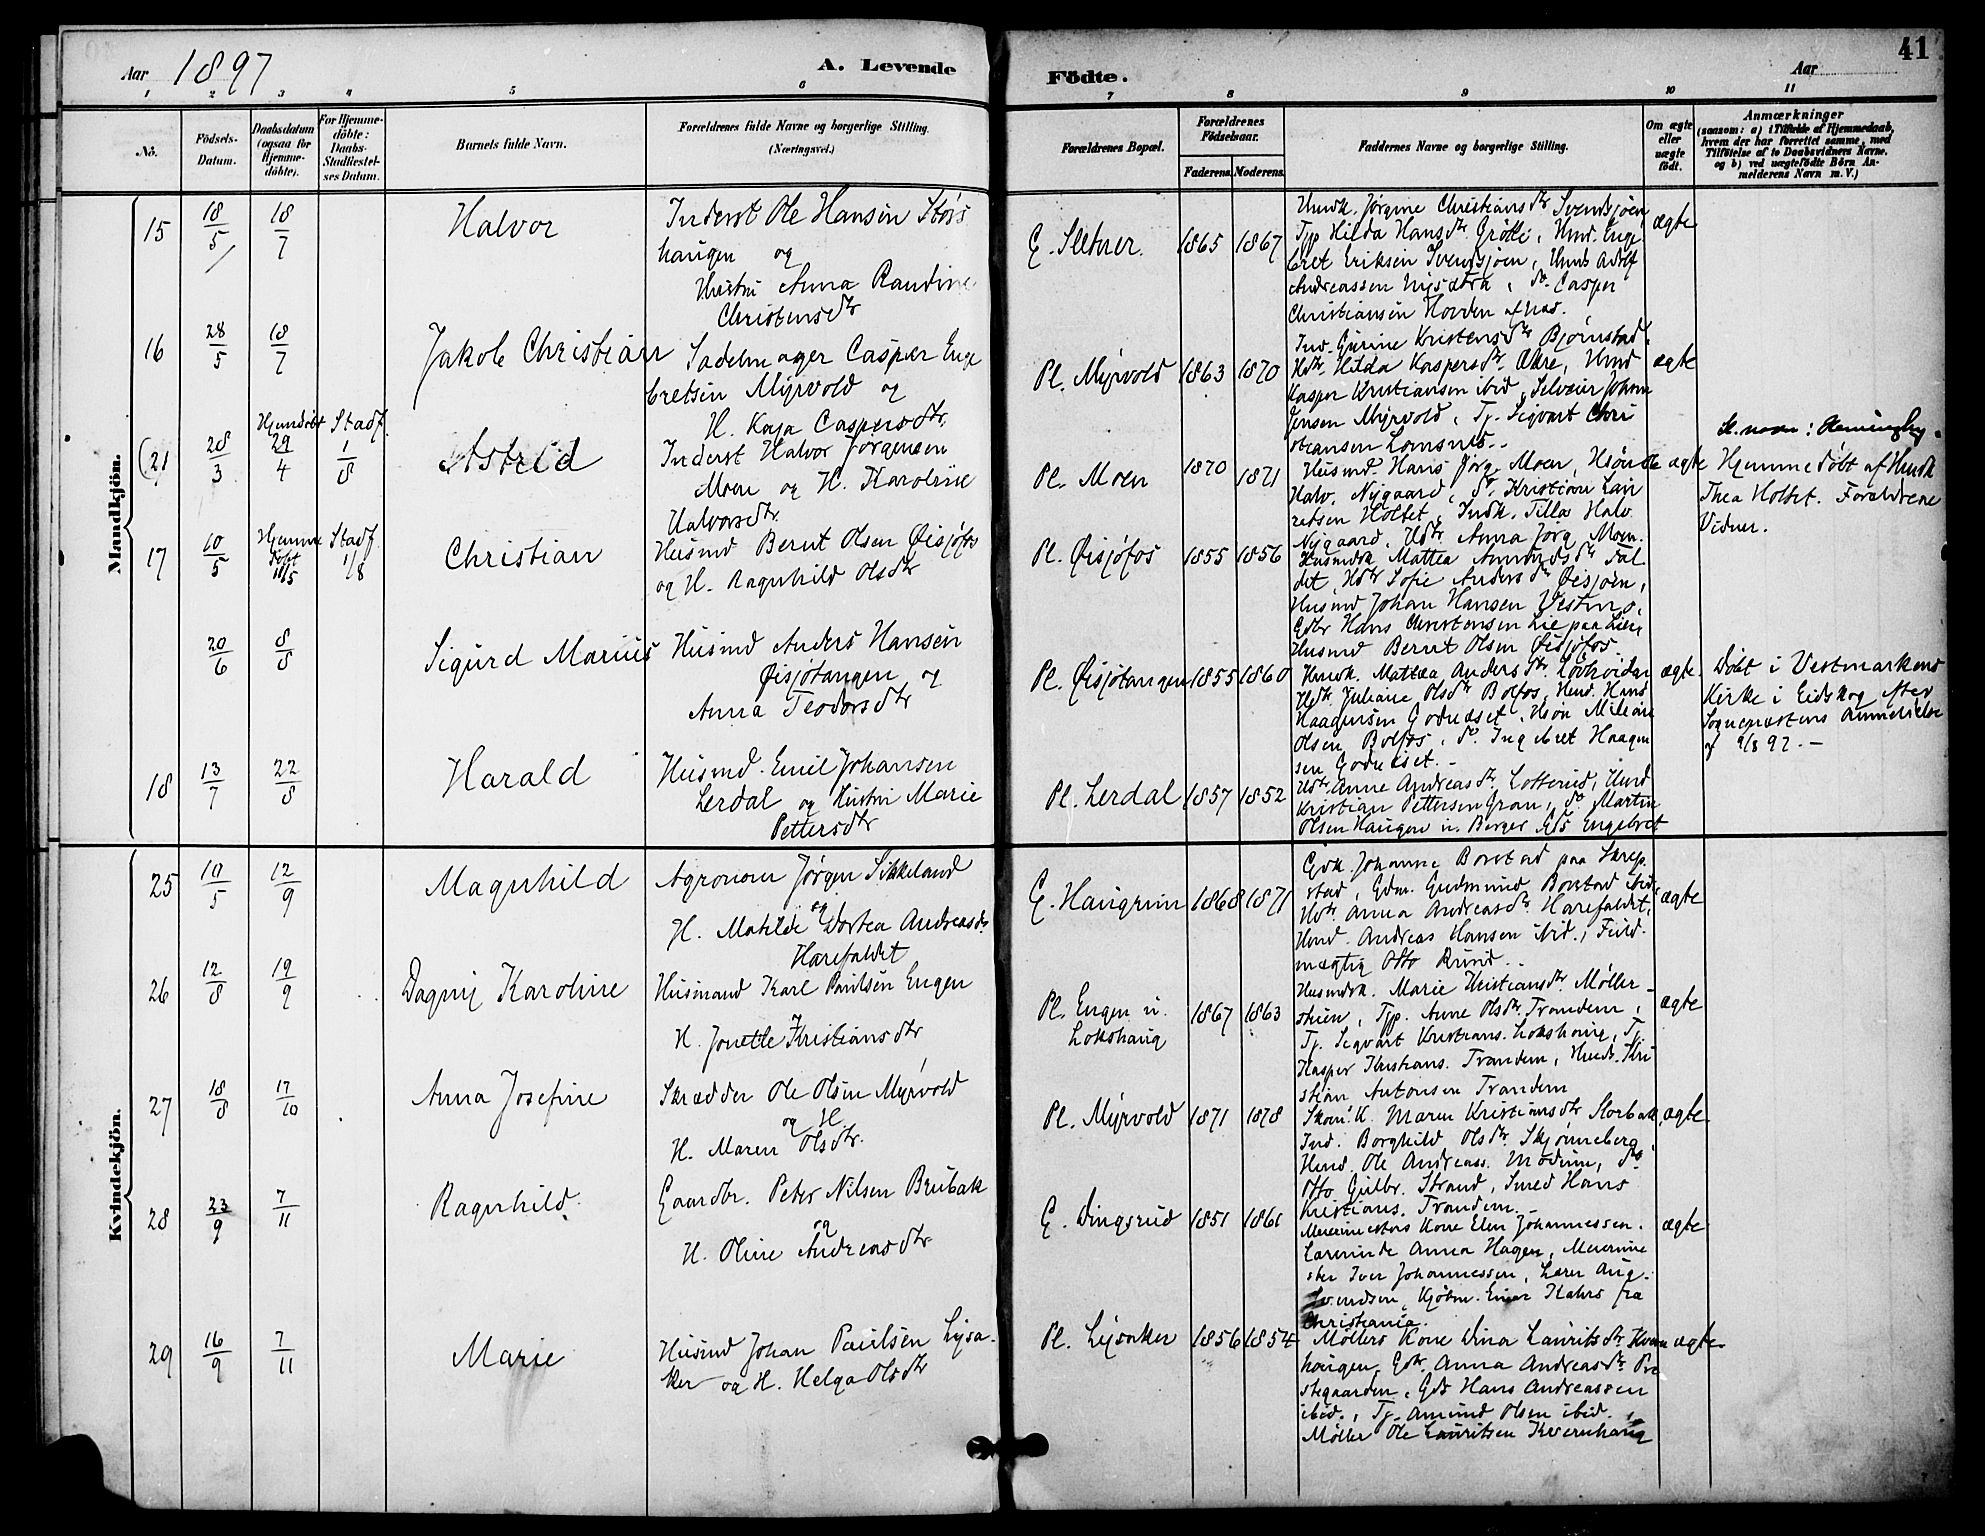 Aar 1897
A. Levende
Födte.
Aar
41
1 2 3 4 5 6 7 8 9 10 11
No.
Födsels-Datum.
Daabsdatum (ogsaa for Hjemme-döbte).
For Hjemme-döbte: Daabs-Stadfæstel-ses Datum.
Barnets fulde Navn.
Forældrenes fulde Navne og borgerlige Stilling.
(Næringsvei.)
Forældrenes Bopæl.
Forældrenes Födselsaar.
Faderens. Moderens.
Faddernes Navne og borgerlige Stilling.
Om ægte eller uægte födt.
Anmærkninger
(saasom: a) i Tilfælde af Hjemmedaab,
hvem der har forrettet samme, med
Tilföielse af to Daabsvidners Navne,
og b) ved uægtefödte Börn An-
melderens Navn m. V.)
Mandkjön.
15 18/5 18/7 Halvor
Inderst Ole Hansen Störs
haugen og
Hustru Anna Randine
Christensdtr
G. Sletner. 1865 1867
Husmk. Jørgine Christiansdtr Svensjøen,
Tjp Hilda Hansdtr Grötli, Husmd. Enge
bret Eriksen Svensjøen, Husmd Adolf
Andreassen Nysætra, do. Casper
Christiansen Hovden af
ægte
16 28/5 18/7 Jakob Christian
Sadelmager Casper Enge
bretsen Myrvold og
H. Kaja Caspersdtr.
Pl. Myrvold 1863 1870
Ind. Gurine Kristensdtr Bjørnstad.
Hdtr. Hilda Kaspersdtr. Husmd
Kasper Kristiansen ibid, Selveier Johan
Jensen Myrvold, Tj. Sigvart Chri
stiansen Lomsnes.
ægte
(21 28/3 Hjemdöbt 29/4 Stadf. 1/8 Astrid
Inderst Halvor Jørgensen
Moen og H. Karoline
Halvorsdtr.
Pl. Moen 1870 1871
Husmd. Hans Jørg. Moen, Hsøn Ole
Halv. Nygaard, do. Kristian Lau
retsen Holtet, Indk. Tilla Halv.
Nygaard. Hdtr Anna Jørg Moen.
ægte
Sl. navn: Hemingby.
Hjemmedöbt af Husmk
Thea Holtet. Forældrene
Vidner.
17 10/5 Hjemme döbt 18/5 Stadf 1/8 Christian
Husmd Bernt Olsen Øisjøfos
og H. Ragnhild Olsdtr
Pl. Øisjøfos 1855 1856
Husmdk Mattea Amundsdtr Fal
det, Hdtr Sofie Andersdtr Øisjøen,
Husmd Johan Hansen Vestmo,
Gdbr Hans Christensen Lie paa Lien
Husmd Bernt Olsen Øisjøfos.
20/6 8/8 Sigurd Marius
Husmd Anders Hansen
Øisjøtangen og
Anna Teodorsdtr
Pl. Øisjøtangen 1855 1860
Husmk. Mattea Andersdtr.
Hdtr Juliane Olsdtr Bolfos, Husmd. Hans
Haagensen Godueset, Hsön
Olsen Bolfos, do. Ingebret Haagen
sen Godueset.
ægte.
Döbt i Vestmarkens
Kirke i Eidskog efter
Sogneprestens Anmeldelse
af 9/8 97.
18 13/7 22/8 Harald
Husmd. Emil Johansen
Lerdal og Hustru Marie
Pettersdtr
Pl. Lerdal 1857 1852
Hdtr. Anne Andreasdtr. Lotterud, Husmd
Kristian Pettersen Gran, do. Martin
Olsen Haugen u. Berger Gds Engebret
Kvindekjön.
25 10/5 12/9 Magnhild
Agronom Jørgen Sikkeland
og
H. Matilde Dortea Andreasdtr.
Harefaldet
G. Haugrim 1868 1871
Gdk. Johanne Borstad paa Skrep
stad, Gdm. Gudmund Borstad ibid
Hdtr. Anna Andreasdtr. Harefaldet,
Husmd. Andreas Hansen ibid., Fuld-
mægtig Otto Ruud.
ægte
26 12/8 19/9 Dagny Karoline
Husmand Karl Paulsen Engen
H. Jonette Kristiansdtr
Pl. Engen u.
Lokshaug
1867 1863
Husmdk. Marie Kristiansdtr. Møller-
stuen, Tjp. Anne Olsdtr. Trandem,
Tj. Sigvart Kristians. Lokshaug, Tj.
Kasper Kristians. Trandem, Husmd. Kri
stian Antonsen Trandem
ægte
27 18/8 17/10 Anna Josefine
Skrædder Ole Olsen Myrvold
og H.
H. Maren Olsdtr.
Pl. Myrvold 1871 1878
Skom. K. Maren Kristiansdtr Storbak,
Ind. Borghild Olsdtr. Skjønneberg,
Husmd. Ole Andreass. Modum, do.
Otto Gulbr. Strand, Smed Hans
Kristians. Trandem.
ægte
28 23/9 7/11 Ragnhild.
Gaardbr. Peter Nilsen Brubak
og
H. Oline Andreasdtr
G. Dingsrud 1851 1861
Meierimesters Kone Elen Johannessen.
Lærerinde Anna Hagen, Meierime
ster Iver Johannessen, Lærer Aug.
Svendsen, Kjøbm. Einar Kahrs fra
Christiania.
ægte
29 16/9 7/11 Marie
Husmd Johan Paulsen Lysa-
ker og H. Helga Olsdtr
Pl. Lysaker 1856 1854
Møllers Kone Dina Lauritsdtr. Kvern
haugen, Gdtr. Anna Andreasdtr. Pre
stegaarden, Gds Hans Andreassen
ibid., Tj. Amund Olsen ibid.,
Møller Ole Lauritsen Kvernhaug
ægte